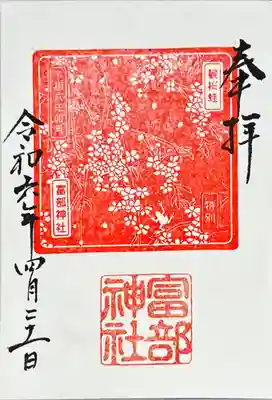 奉拝
特別
富部神社
富部神社
令和六年四月二十一日